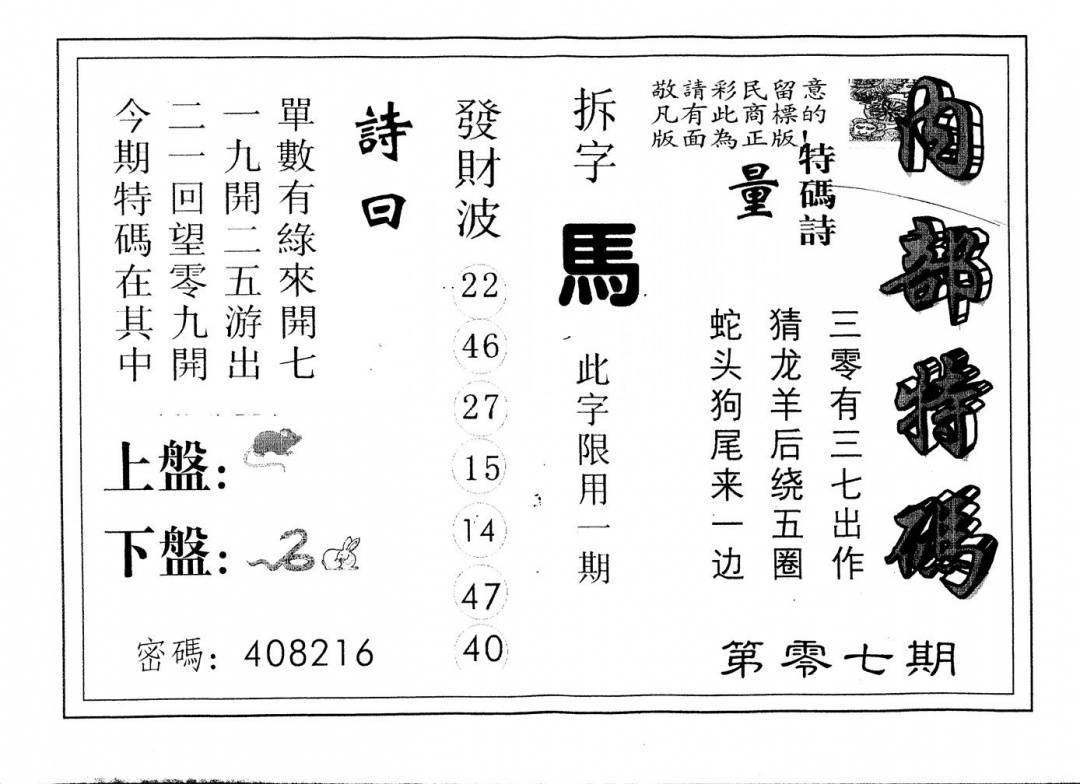 內部特碼
第零七期
敬請彩民留意
凡有此商標的
版面為正版!
特碼詩
量
三零有三七出作
猜龙羊后绕五圈
蛇头狗尾来一边
拆字
馬
此字限用一期
發財波
22
46
27
15
14
47
40
詩曰
單數有綠來開七
一九開二五游出
二一回望零九開
今期特碼在其中
上盤:
下盤:
密碼: 408216